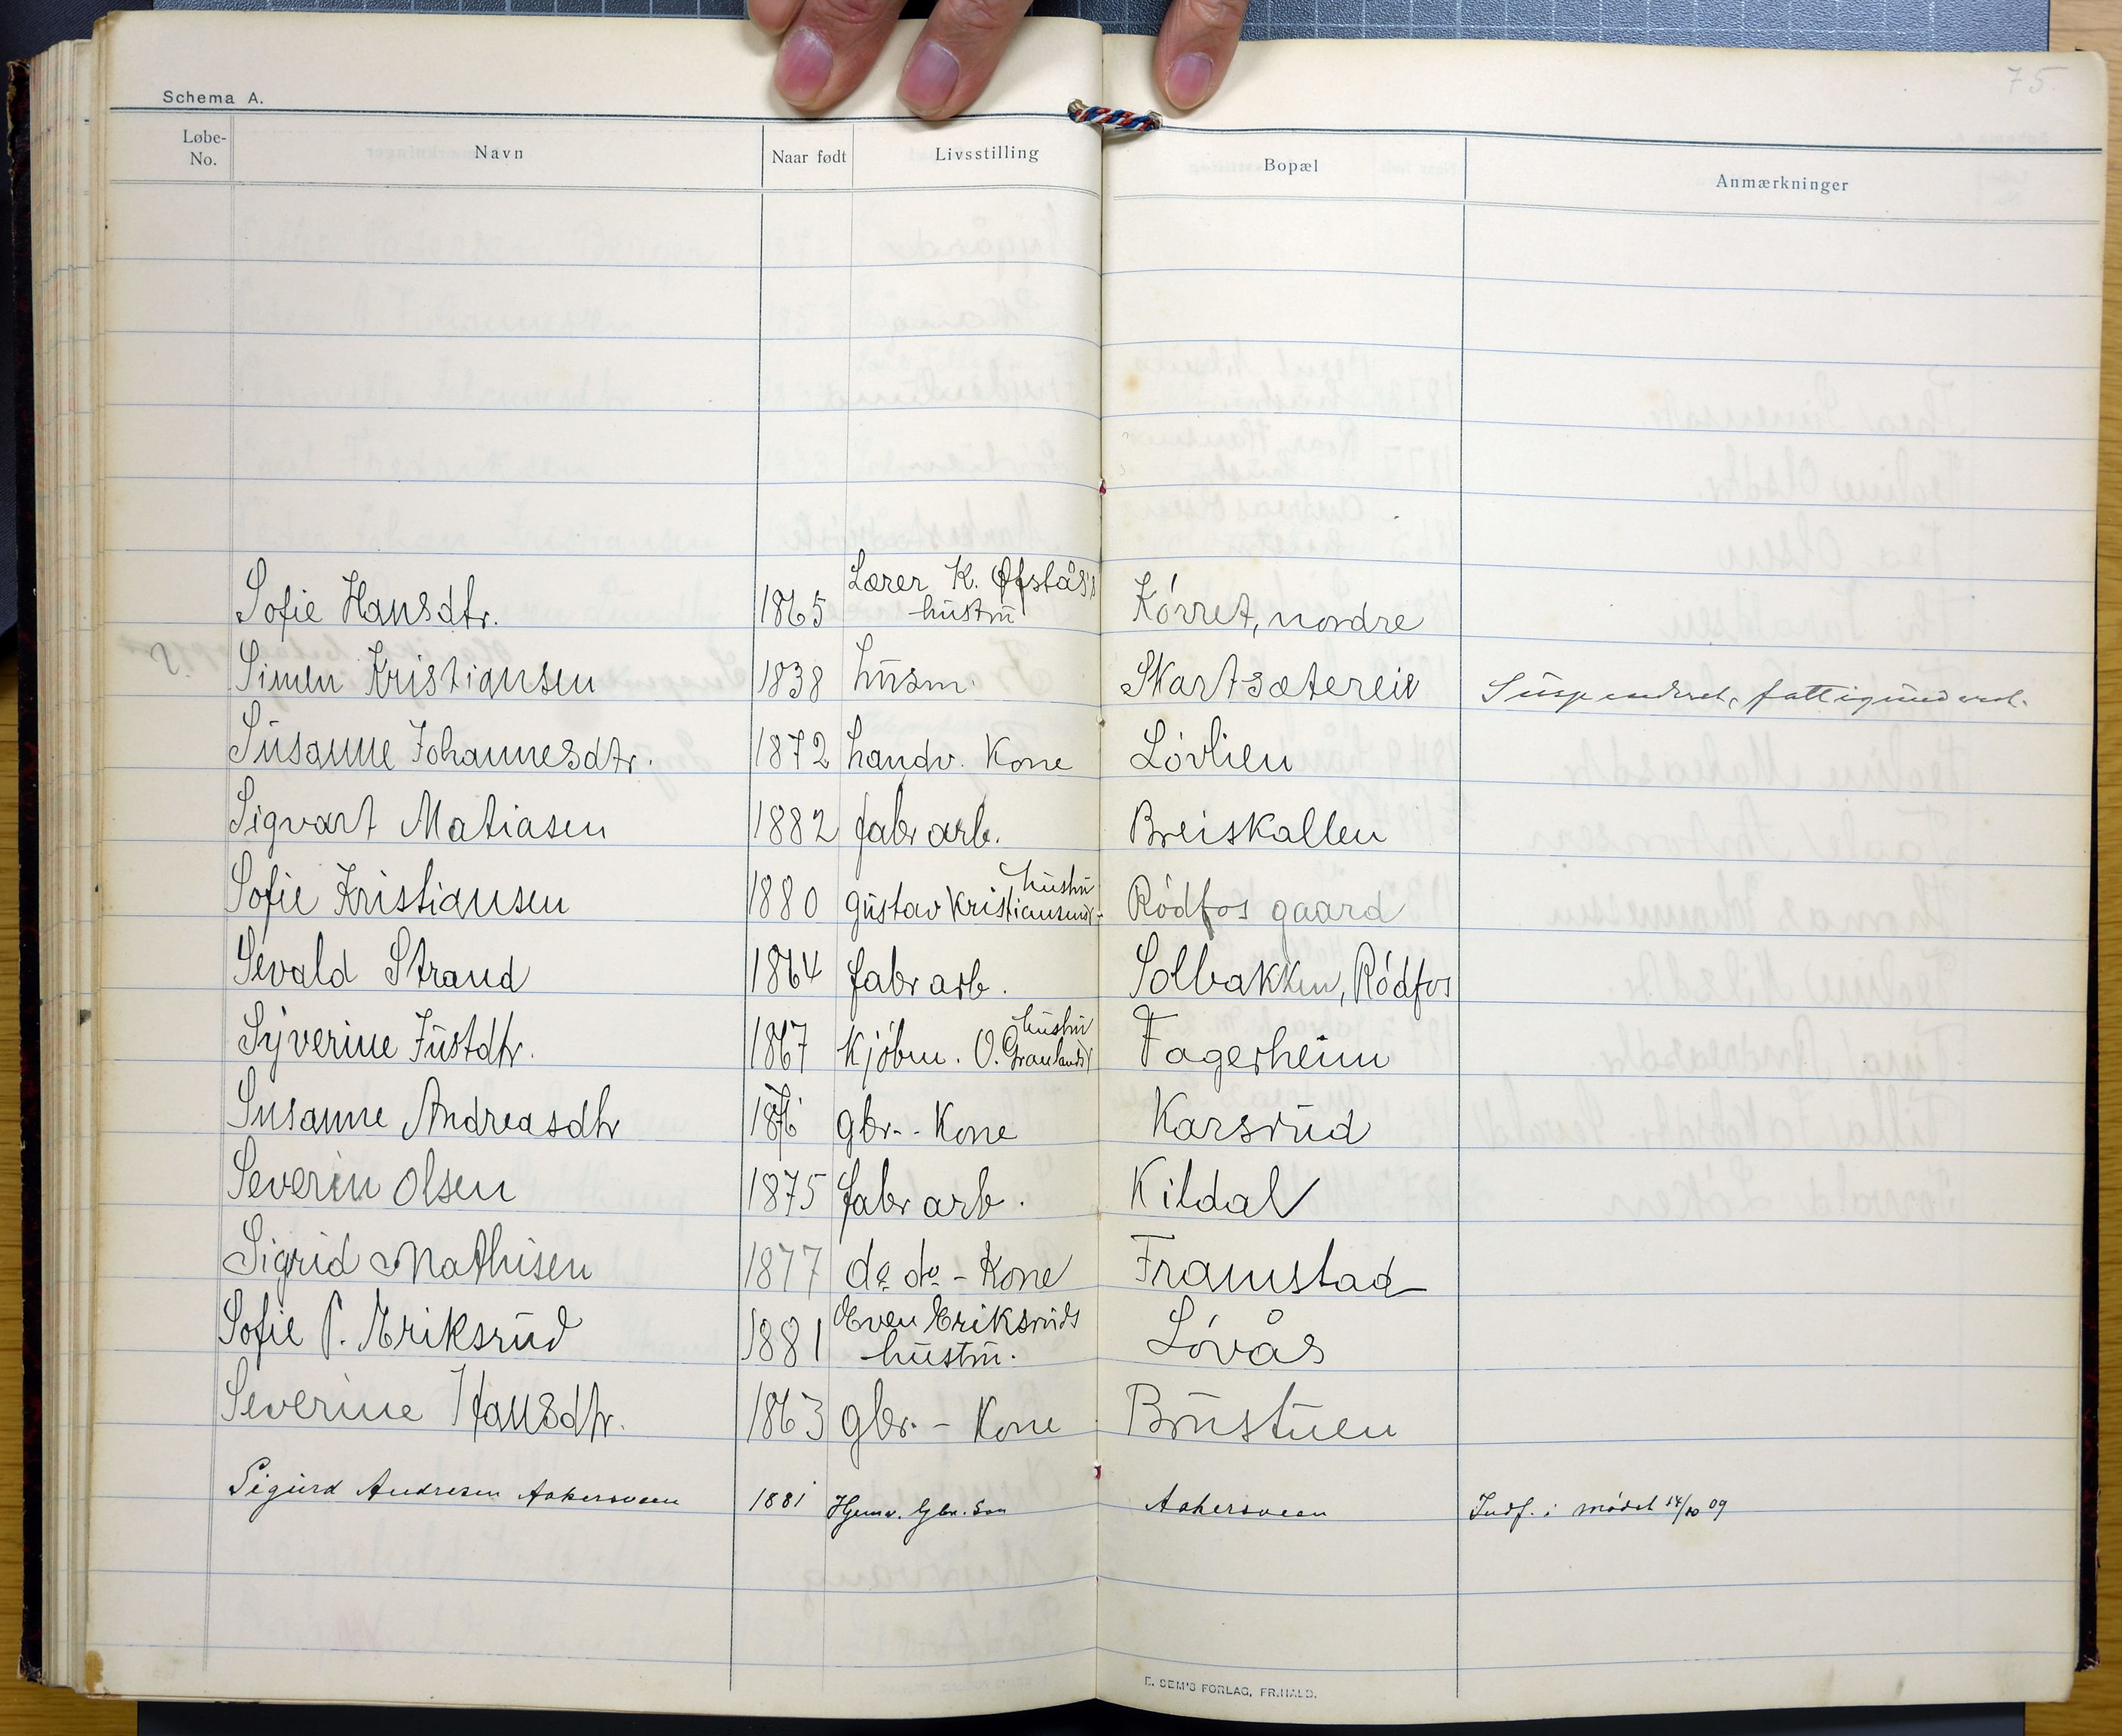 75.
Schema A.
Løbe-No. Navn Naar født Livsstilling Bopæl Anmærkninger
Sofie Hansdtr. 1865 Lærer K. Øfstås's hustru Kørret, nordre
Simen Kristiansen 1838 husm. Skartsætereie Suspenderet, fattigunderst.
Susanne Johannesdtr. 1872 handv. Kone Løvlien
Sigvart Matiasen 1882 fabr arb. Breiskallen
Sofie Kristiansen 1880 Gustav Kristiansens hustru Rødfos gaard
Sevald Strand 1864 fabr arb. Solbakken, Rødfos
Syverine Justdtr. 1867 Kjøbm. O. Granlunds hustru Fagerheim
Susanne Andreasdtr gbr. - Kone Karsrud
Severin Olsen 1875 fabr arb. Kildal
Sigrid Mathisen 1877 do do - Kone Framstad
Sofie P. Eriksrud 1881 Even Eriksruds hustru. Løvås
Severine Hansdtr. 1863 gbr. - Kone Brustuen
Sigurd Andresen Aakersveen 1881 Hjemv. Gbr. Søn Aakersveen Indf. i mødet 14/10 09
E. SEM'S FORLAG, FR.HALD.